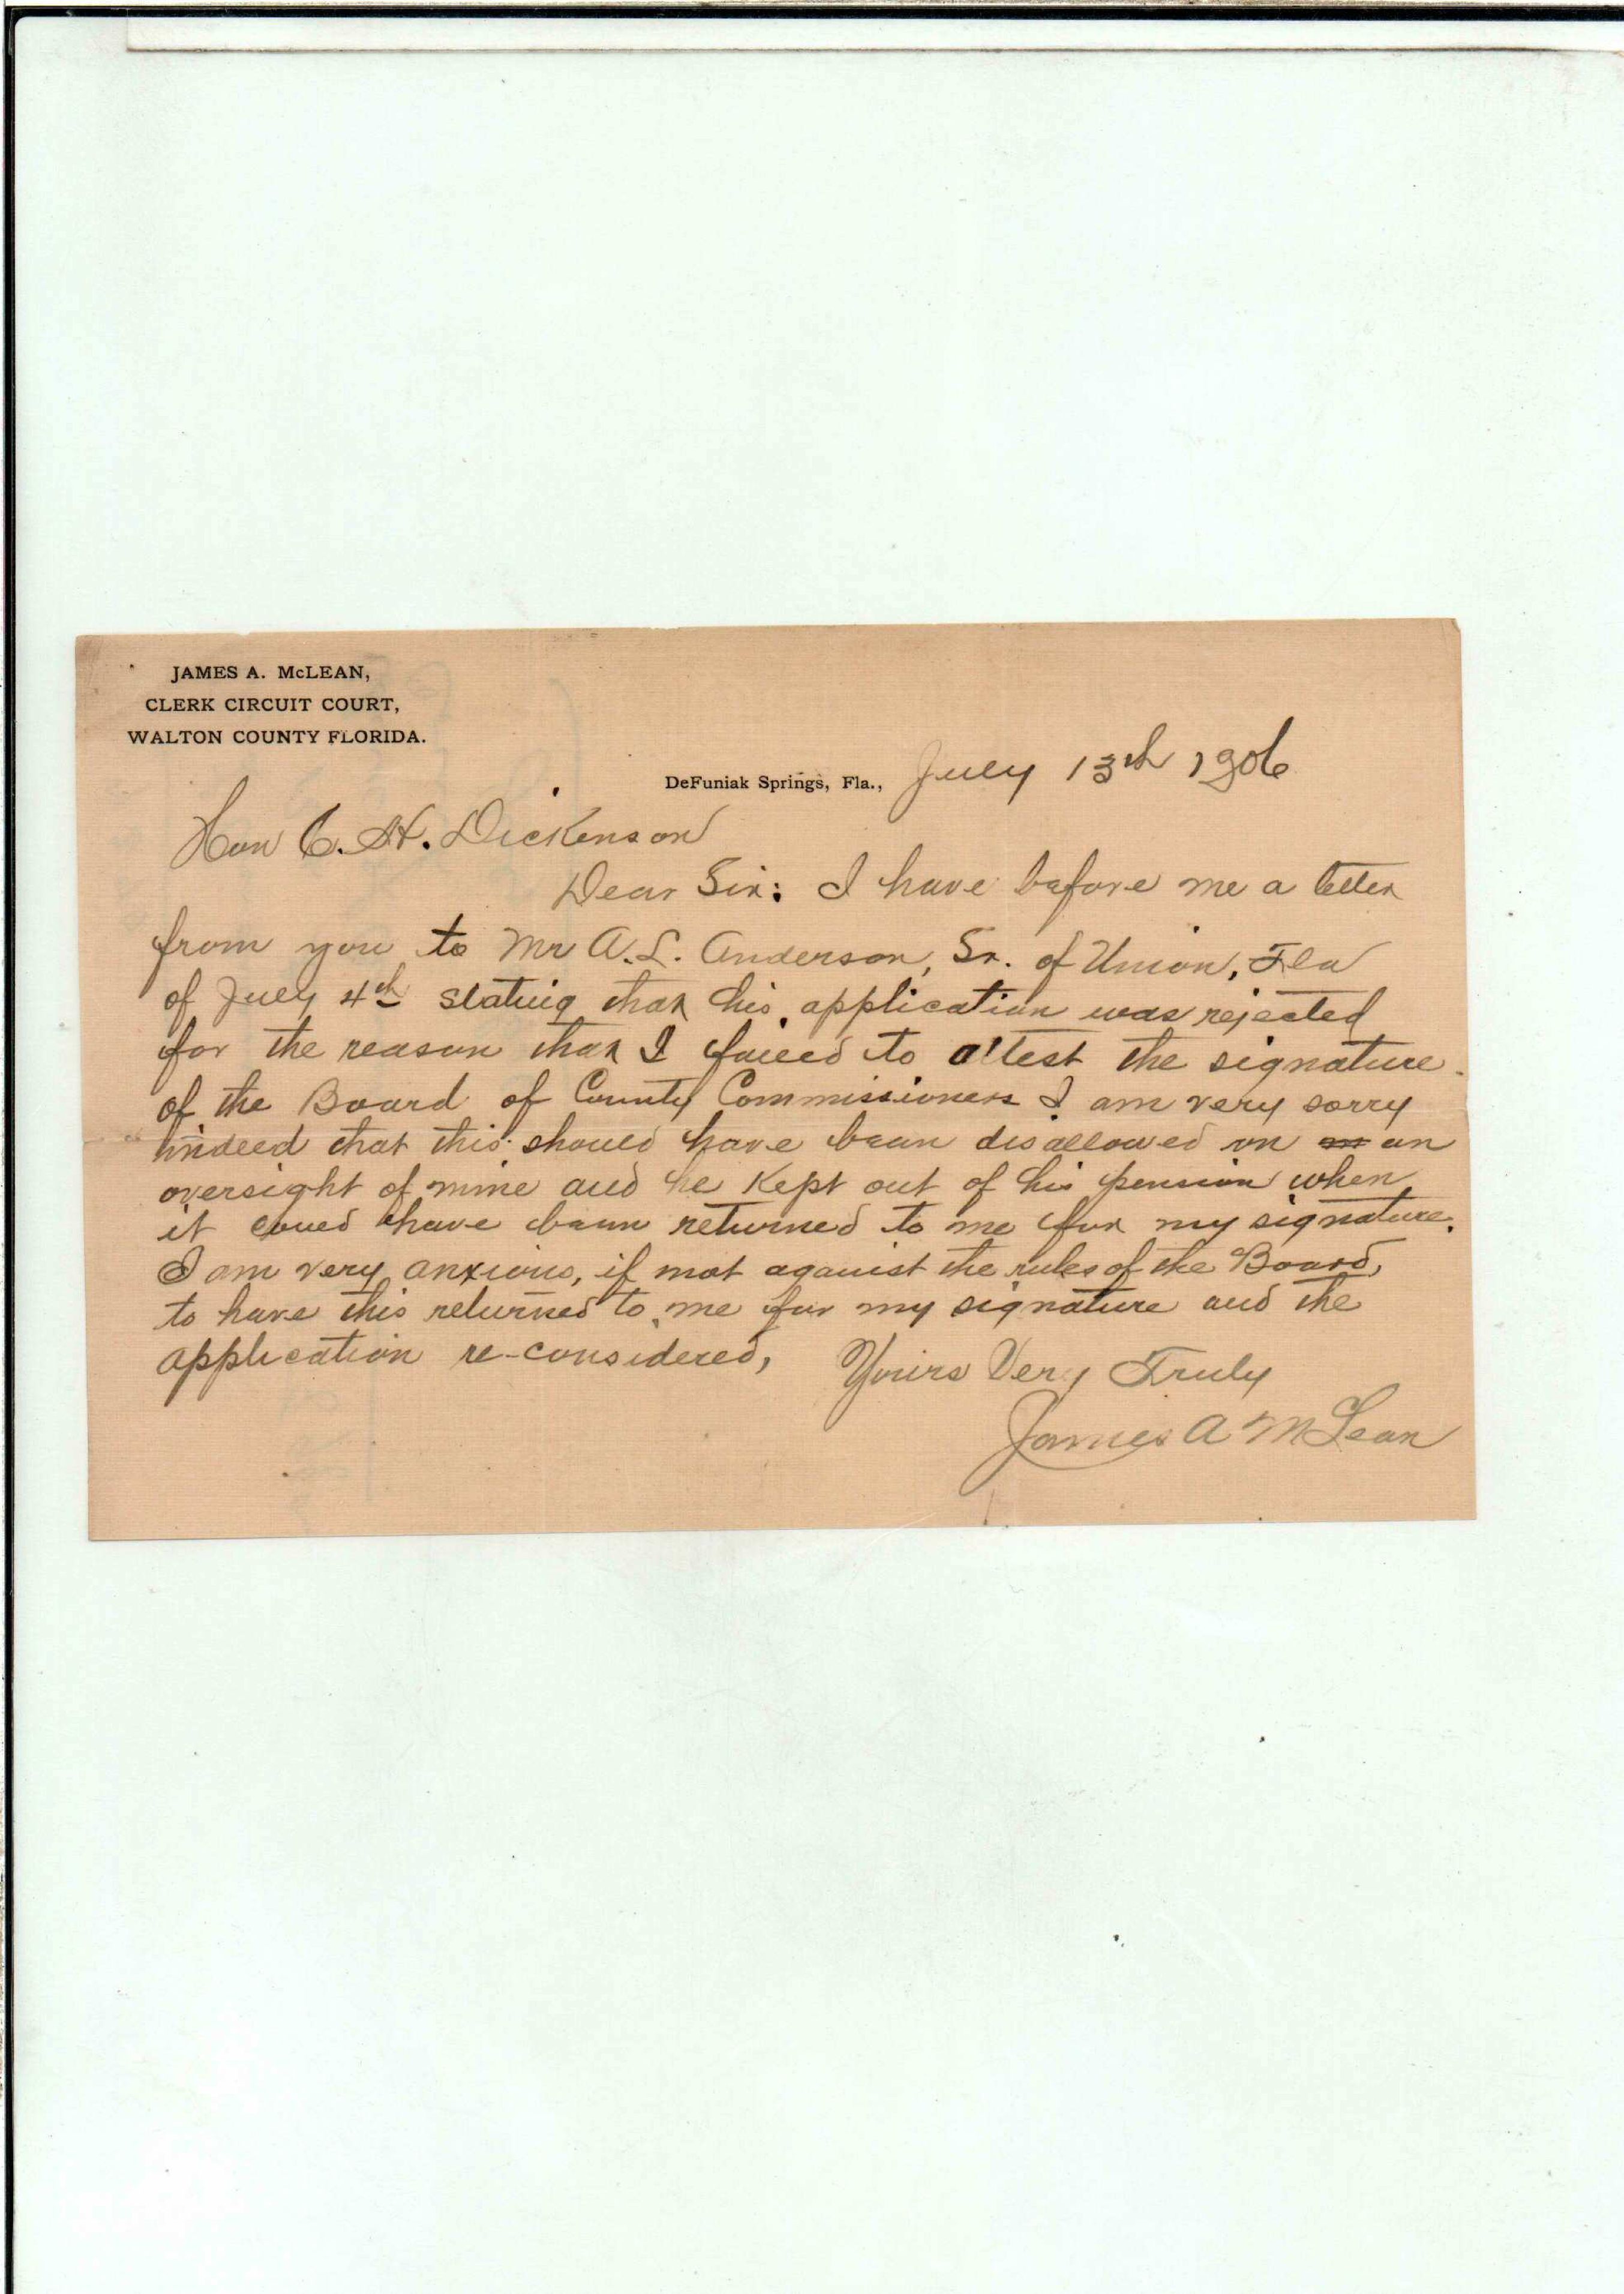 JAMES A. McLEAN,
CLERK CIRCUIT COURT,
WALTON COUNTY FLORIDA.
DeFuniak Springs, Fla., July 13th 1906
Hon C. H. Dickenson
Dear Sir: I have before me a letter
from you to Mr A. L. Anderson, Sr. of Union, Fla
of July 4th stating that his application was rejected
for the reason that I failed to attest the signature
of the Board of County Commissioners I am very sorry
indeed that this should have been disallowed on an
oversight of mine and he kept out of his pension when
it could have been returned to me for my signature.
I am very anxious, if not against the rules of the Board,
to have this returned to me for my signature and the
application re-considered,
Yours Very Truly
James A McLean